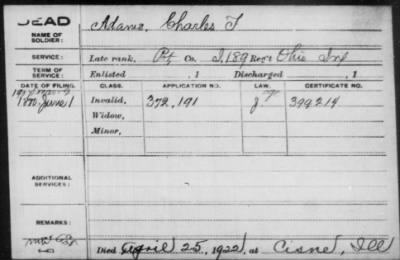 DEAD
NAME OF SOLDIER: Adams, Charles F
SERVICE: Late rank, Pt Co. I, 189 Reg't Ohio Inf
TERM OF SERVICE: Enlisted , 1 Discharged , 1
DATE OF FILING. CLASS. APPLICATION NO. LAW. CERTIFICATE NO.
June 1 Invalid, 372,191 399214
Widow,
Minor,
ADDITIONAL SERVICES:
REMARKS:
Died April 25, 1922, at Cisne, Ill